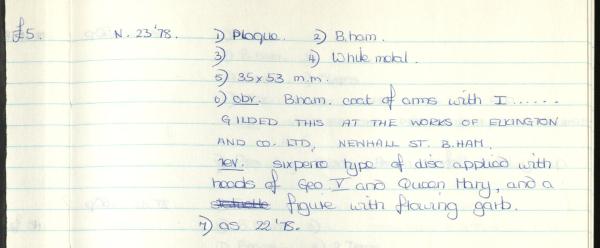 £5. N. 23'78. 1) Plaque. 2) B.ham.
3) 4) White metal.
5) 35x53 m.m.
6) obv. B.ham. coat of arms with I......
GILDED THIS AT THE WORKS OF ELKINGTON
AND CO. LTD, NEWHALL ST. B.HAM.
rev. sixpence type of disc applied with
heads of Geo V and Queen Mary, and a
figure with flowing garb.
7) as 22'78.